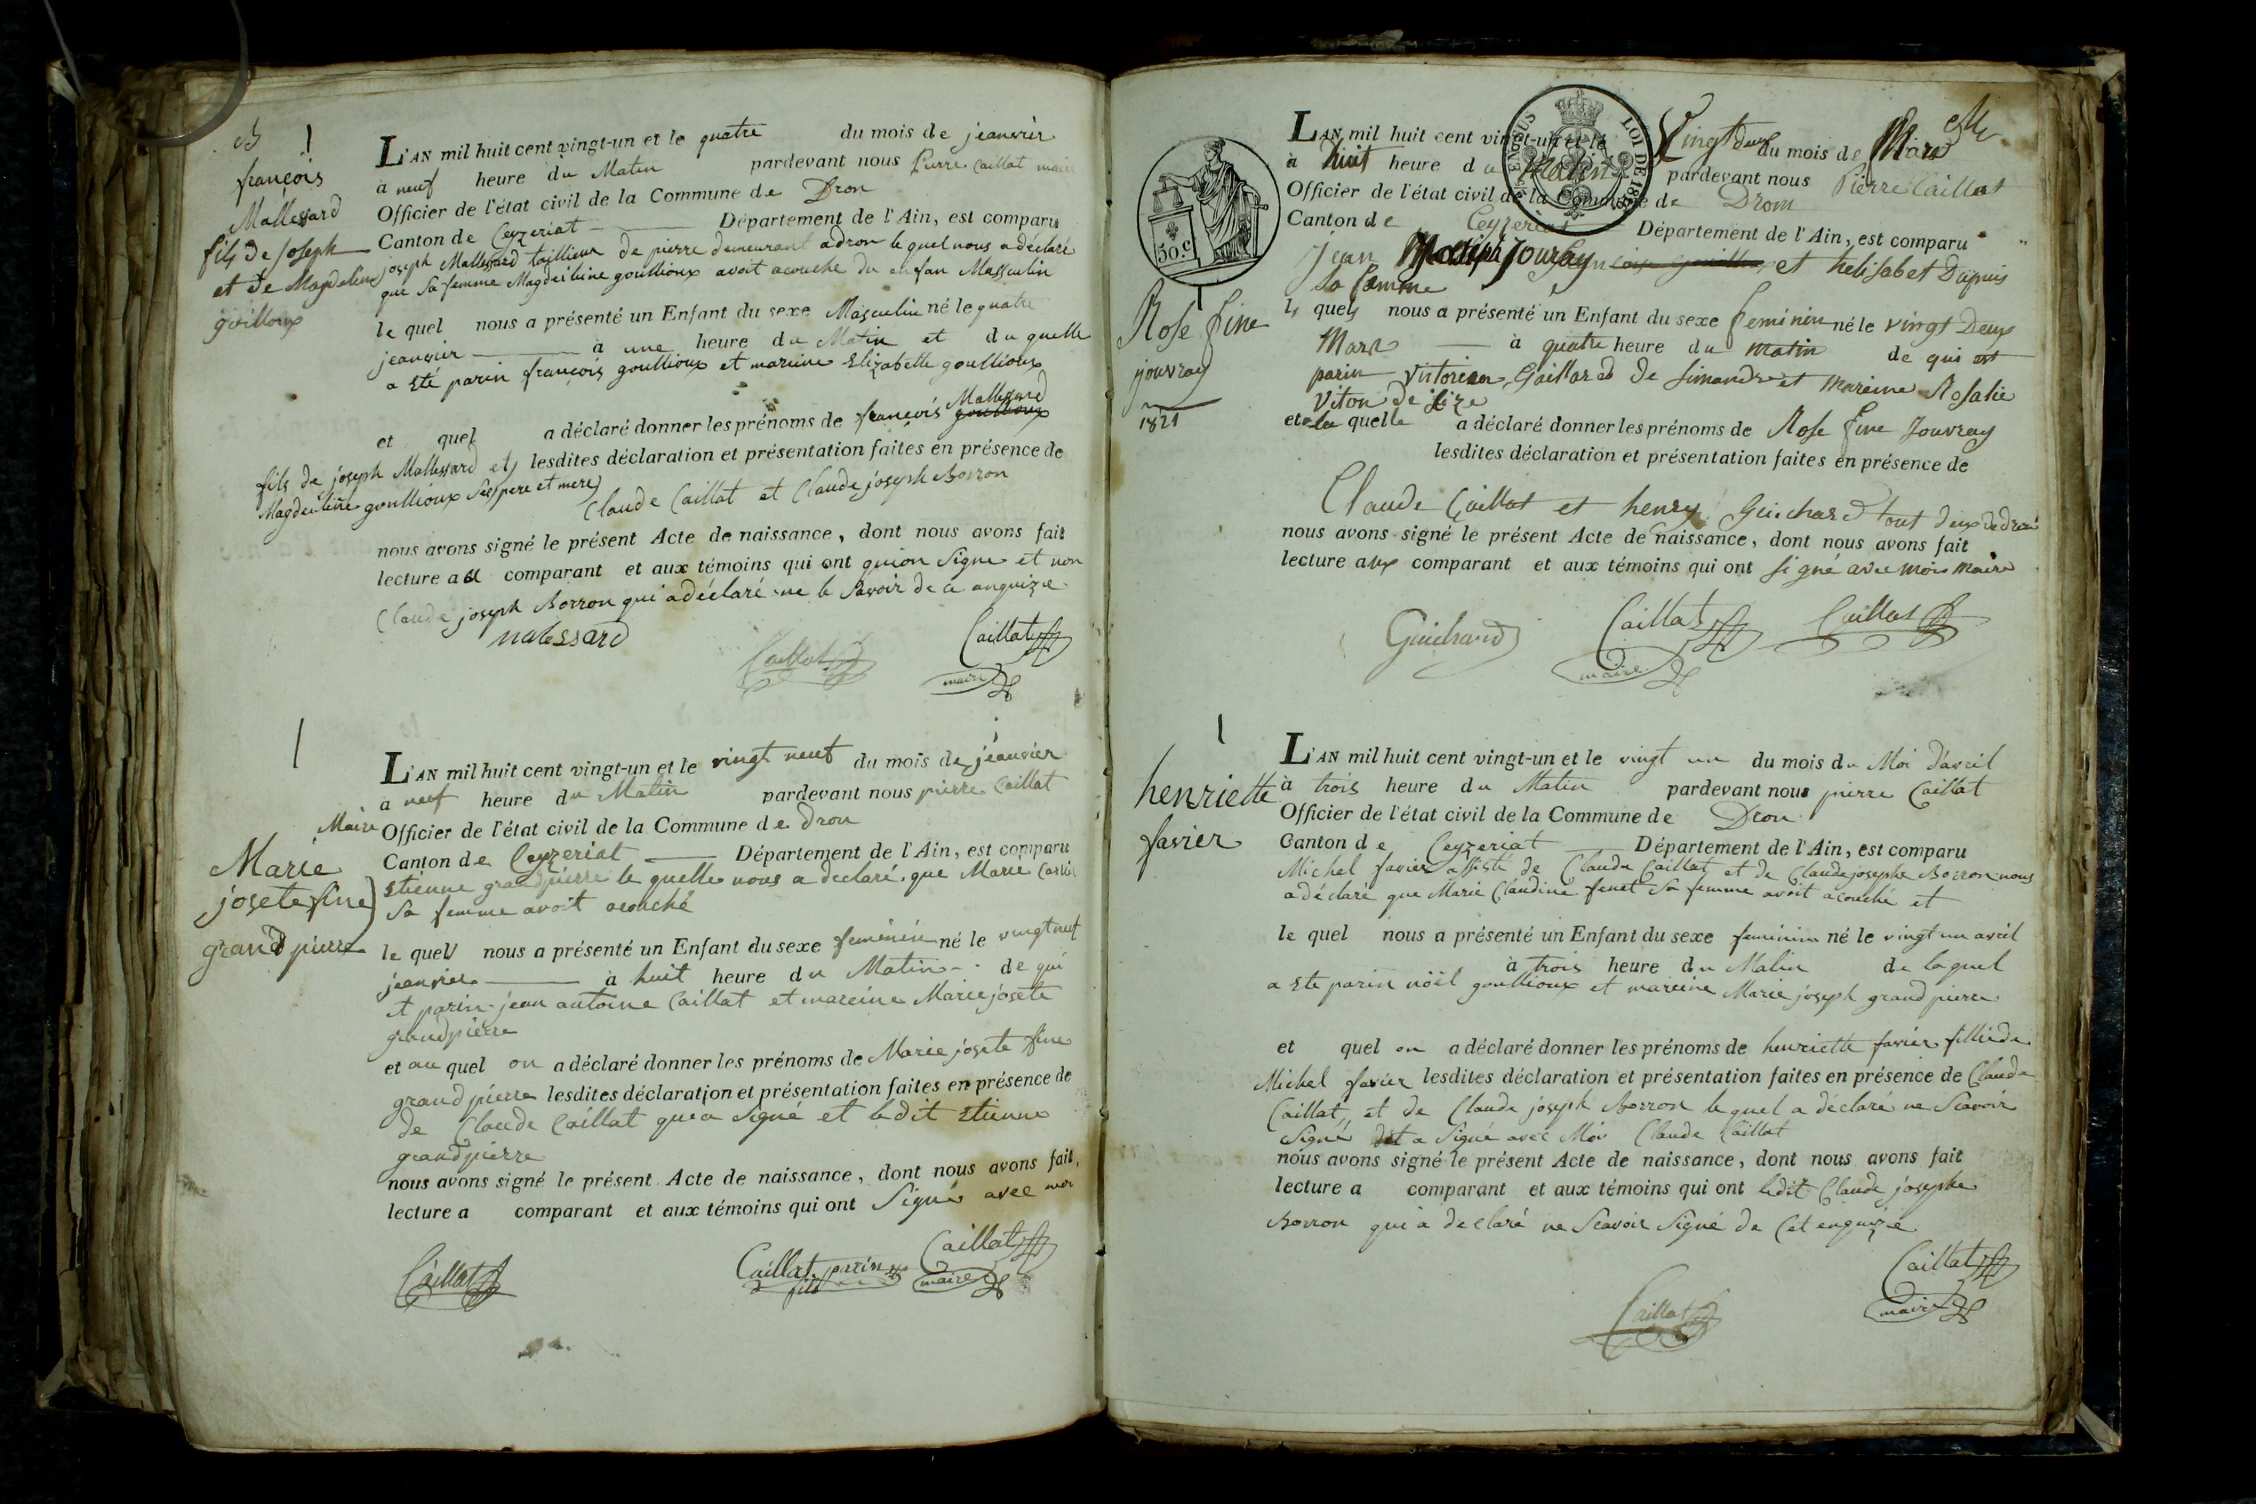 françois
Mallessard
fils de Joseph
et de Magdeleine
goilloux
L'AN mil huit cent vingt-un et le quatre du mois de jeanvier
à neuf heure du Matin pardevant nous Pierre Caillat maire
Officier de l'état civil de la Commune de Dron
Canton de Ceyzeriat Département de l'Ain, est comparu
joseph Mallessard taillieur de pierre demeurant a dron le quel nous a déclaré
que Sa femme Magdeileine goullioux avoit acouche du enfan Masseulin
le quel nous a présenté un Enfant du sexe Masculin né le quatre
jeanvier à une heure du Matin et du quelle
a été parin françois goullioux et mareine Elizabette goullioux
Mallessard
et quel a déclaré donner les prénoms de françois goullioux
fils de joseph Mallessard et lesdites déclaration et présentation faites en présence de
Magdeileine goullioux Ses pere et mere
Claude Caillat et Claude joseph Borron
nous avons signé le présent Acte de naissance, dont nous avons fait
lecture au comparant et aux témoins qui ont quion Signe et non
Claude joseph Borron qui a déclaré ne le Savoir de ce anquize
malessard
Caillat
Caillat
maire
Marie
josete fine
grand pierre
L'AN mil huit cent vingt-un et le vingt neuf du mois de jeanvier
à neuf heure du Matin pardevant nous pierre Caillat
Maire Officier de l'état civil de la Commune de Dron
Canton de Ceyzeriat Département de l'Ain, est comparu
Etienne grandpierre le quelle nous a declaré que Marie
Sa femme avoit acouché
le quel nous a présenté un Enfant du sexe feminin né le vingt neuf
jeanvier à huit heure du Matin de qui
et parin jean antoine Caillat et mareine Marie josete
grandpierre
et au quel on a déclaré donner les prénoms de Marie josete fine
grand pierre lesdites déclaration et présentation faites en présence de
de Claude Caillat que a Signé et ledit Etienne
grandpierre
nous avons signé le présent Acte de naissance, dont nous avons fait
lecture a comparant et aux témoins qui ont Signé avec moi
Caillat
Caillat parin
fils
Caillat
maire
50.c
LOI DE 18
Rose fine
jouvray
1821
L'AN mil huit cent vingt-un et le Vingt deux du mois de Mars
à huit heure du Matin pardevant nous Pierre Caillat
Officier de l'état civil de la Commune de Drom
Canton de Ceyzeriat Département de l'Ain, est comparu
Jean Joseph Jouvray et helisabet Dupuis
Sa femme
ls quels nous a présenté un Enfant du sexe feminin né le vingt Deux
Mars à quatre heure du matin de qui est
parin Victorien Gaillard de Simandre et mareine Rosalie
Viton de lize
et la quelle a déclaré donner les prénoms de Rose fine Jouvray
lesdites déclaration et présentation faites en présence de
Claude Caillat et henry Guichard tout deux de drom
nous avons signé le présent Acte de naissance, dont nous avons fait
lecture aux comparant et aux témoins qui ont signé avec mois maire
Guichard
Caillat
maire
Caillat
henriette
favier
L'AN mil huit cent vingt-un et le vingt un du mois du Moi d'avril
à trois heure du Matin pardevant nous pierre Caillat
Officier de l'état civil de la Commune de Dron
Canton de Ceyzeriat Département de l'Ain, est comparu
Michel favier assisté de Claude Caillat et de Claude josephe Borron nous
a déclaré que Marie Claudine fenet Sa femme avoit acouché et
le quel nous a présenté un Enfant du sexe feminin né le vingt un avril
à trois heure du Matin de laquel
a ete parin noël goullioux et mareine Marie joseph grand pierre
et quel on a déclaré donner les prénoms de henriette favier fillie de
Michel favier lesdites déclaration et présentation faites en présence de Claude
Caillat, et de Claude joseph Borron le quel a déclaré ne Scavoir
Signé dit a Signé avec Moi Claude Caillat
nous avons signé le présent Acte de naissance, dont nous avons fait
lecture a comparant et aux témoins qui ont ledit Claude josephe
Borron qui a declaré ne Scavoir Signé de Cet enquize
Caillat
Caillat
maire